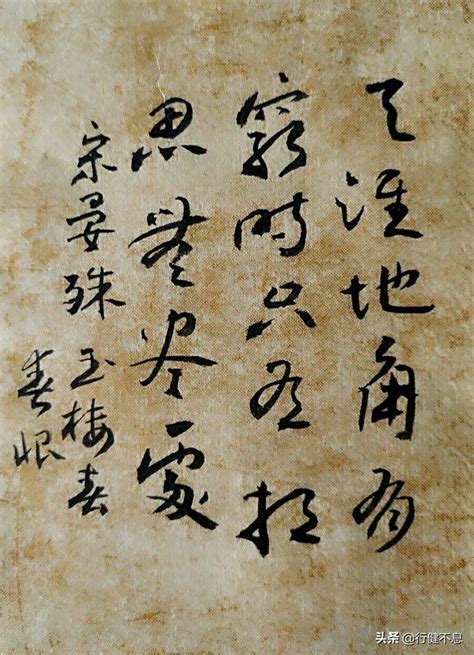 天涯地角有
窮時只有相
思無尽處
宋晏殊玉楼春
春恨
头条 @行健不息